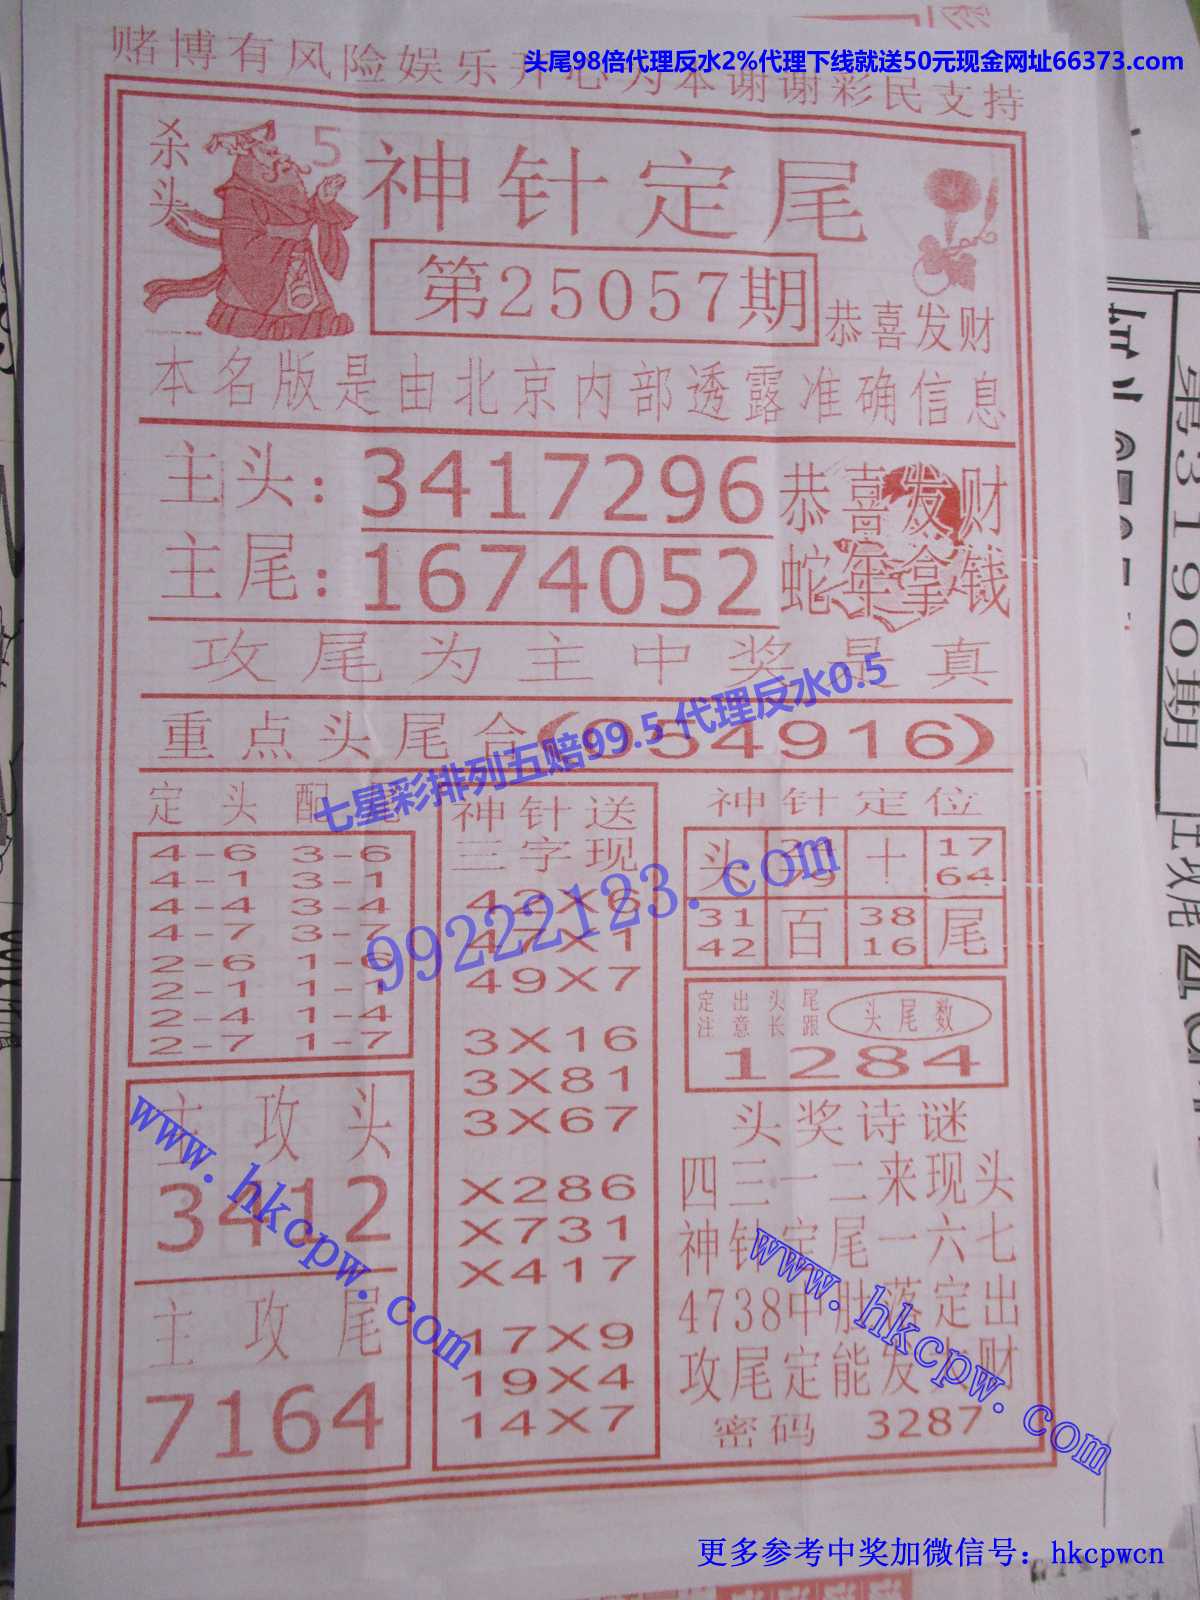 头尾98倍代理反水2%代理下线就送50元现金网址66373.com
赌博有风险娱乐开心为本谢谢彩民支持
杀头 5
神针定尾
第25057期
恭喜发财
本名版是由北京内部透露准确信息
主头：3417296 恭喜发财
主尾：1674052 蛇年拿钱
攻尾为主中奖是真
重点头尾合(054916)
七星彩排列五赔99.5 代理反水0.5
99222123.com
定头配
4-6 3-6
4-1 3-1
4-4 3-4
4-7 3-7
2-6 1-6
2-1 1-1
2-4 1-4
2-7 1-7
主攻头
3412
主攻尾
7164
神针送
三字现
42X6
47X1
49X7
3X16
3X81
3X67
X286
X731
X417
17X9
19X4
14X7
神针定位
头 十 17
64
31 百 38 尾
42 16
定出头尾
注意长跟
头尾数
1284
头奖诗谜
四三一二来现头
神针定尾一六七
4738中肚落定出
攻尾定能发大财
密码 3287
www.hkcpw.com
www.hkcpw.com
更多参考中奖加微信号：hkcpwcn
第3190期